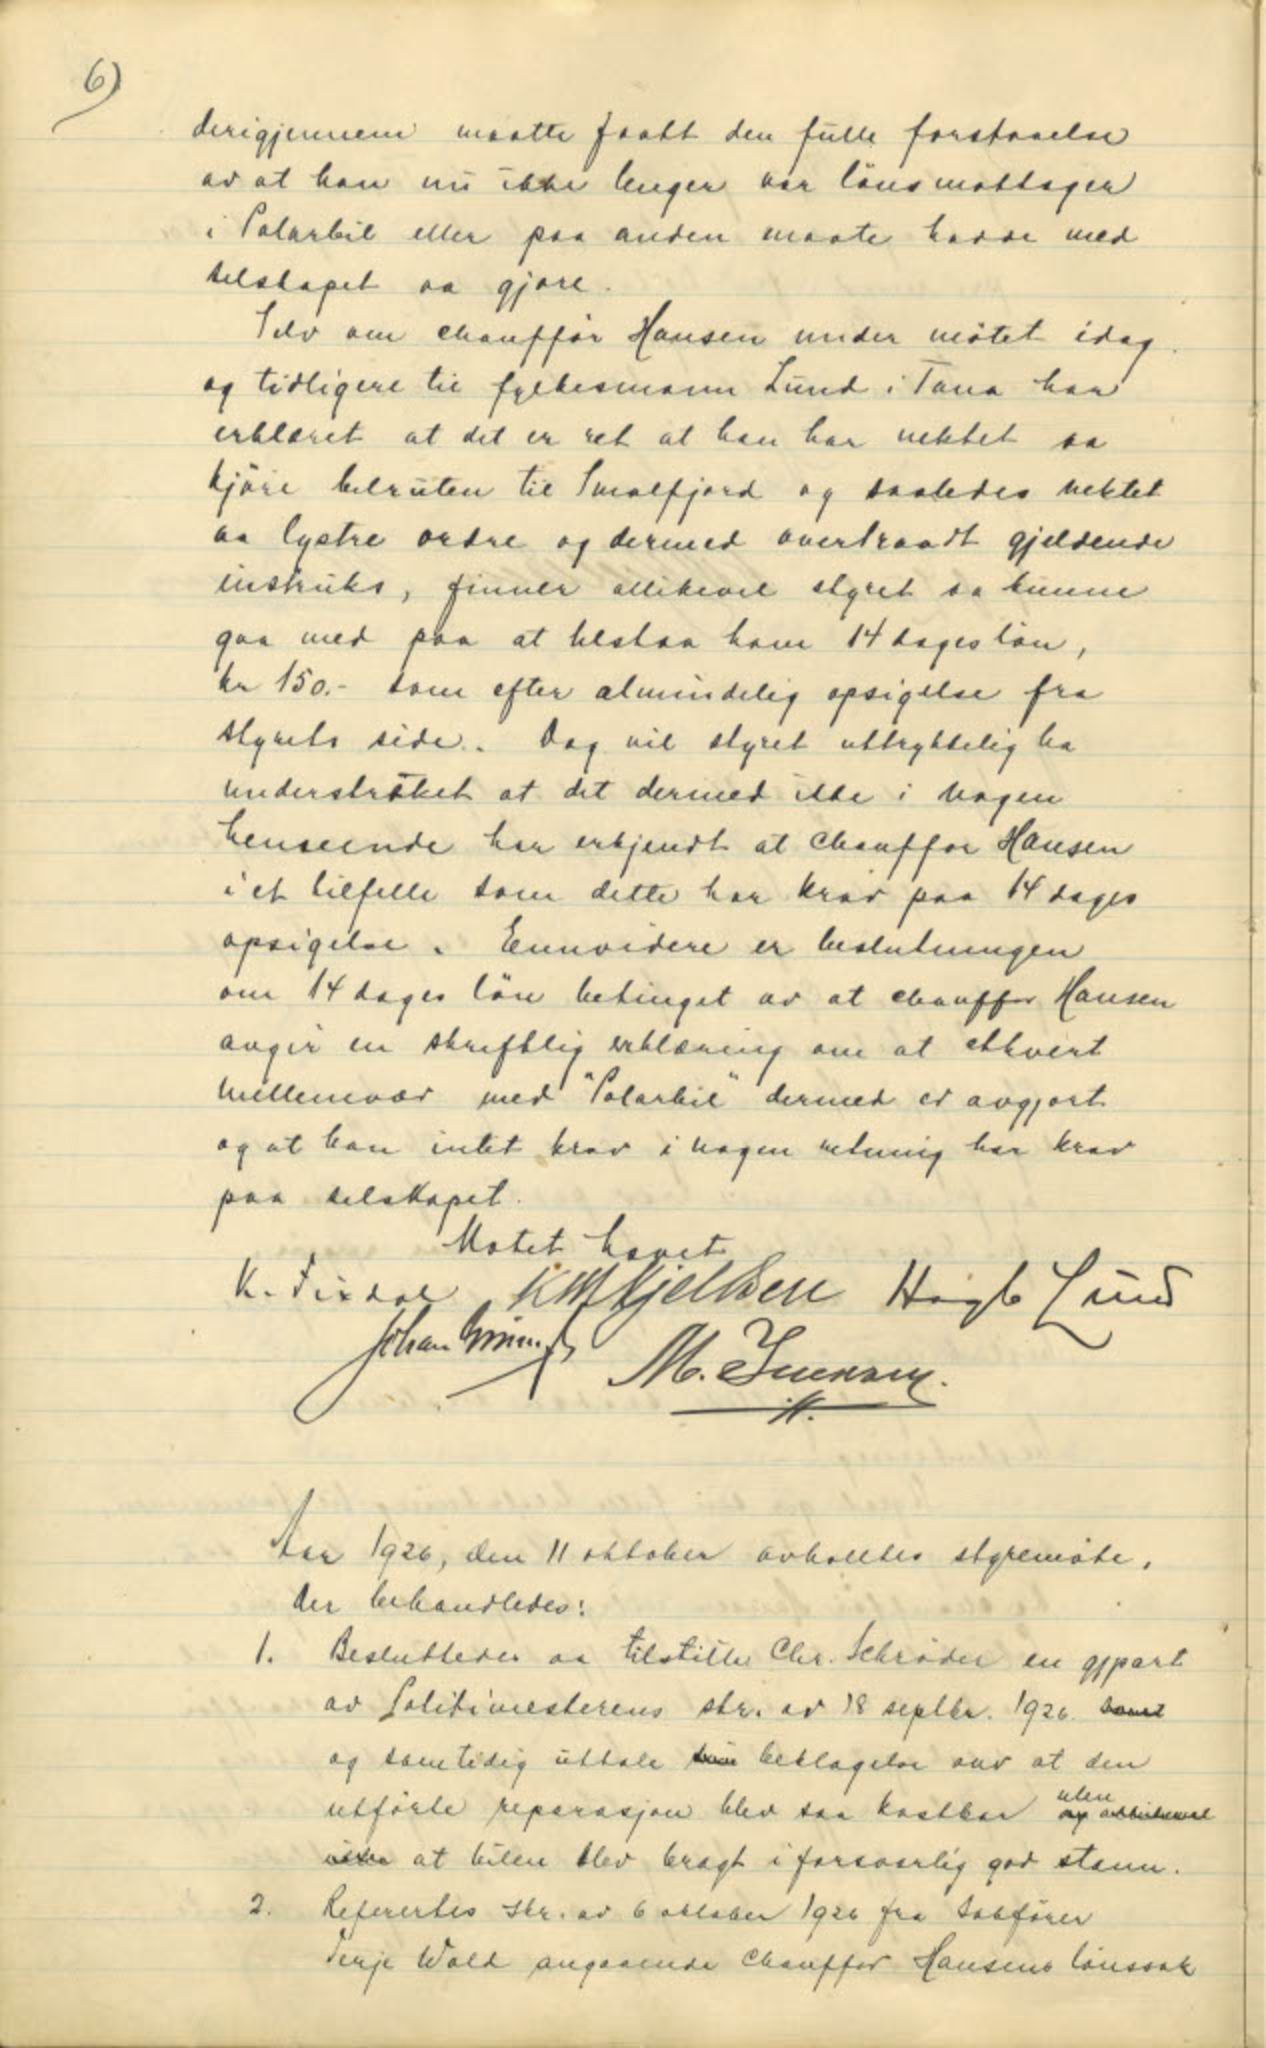 6)
derigjennem maatte faatt den fulle forstaaelse
av at han nu ikke lenger var lönsmottager
i Polarbil eller paa anden maate hadde med
selskapet aa gjøre.
Selv om chauffør Hansen under møtet idag
og tidligere til fylkesmann Lund i Tana har
erklæret at det er ret at han har nektet aa
kjöre bilruten til Smalfjord og saaledes nektet
aa lystre ordre og dermed overtraadt gjeldende
instruks, finner allikevel styret aa kunne
gaa med paa at tilstaa ham 14 dages lön,
kr 150.- som efter almindelig opsigelse fra
styrets side. Dog vil styret uttrykkelig ha
understrøket at det dermed ikke i nogen
henseende har erkjendt at chauffør Hansen
i et tilfelle som dette har krav paa 14 dages
opsigelse. Ennvidere er beslutningen
om 14 dages lön betinget av at chauffør Hansen
avgir en skriftlig erklæring om at ethvert
mellemvær med "Polarbil" dermed er avgjort
og at han intet krav i nogen retning har krav
paa selskapet.
Møtet hevet
K. Firdal K M Kjeldsen Høgb Lund
Johan M.
Aar 1926, den 11 oktober avholdtes styremøte.
Der behandledes:
1. Besluttedes aa tilstille Chr. Schrøder en gjpart
av Politimesterens skr. av 18 septbr. 1926 samt
og samtidig uttale sin beklagelse over at den
utførte reparasjon blev saa kostbar uten og
ikke at bilen blev bragt i forsvarlig god stann.
2. Refertes skr. av 6 oktober 1926 fra sakfører
Terje Wold angaaende chauffør Hansens lønssak